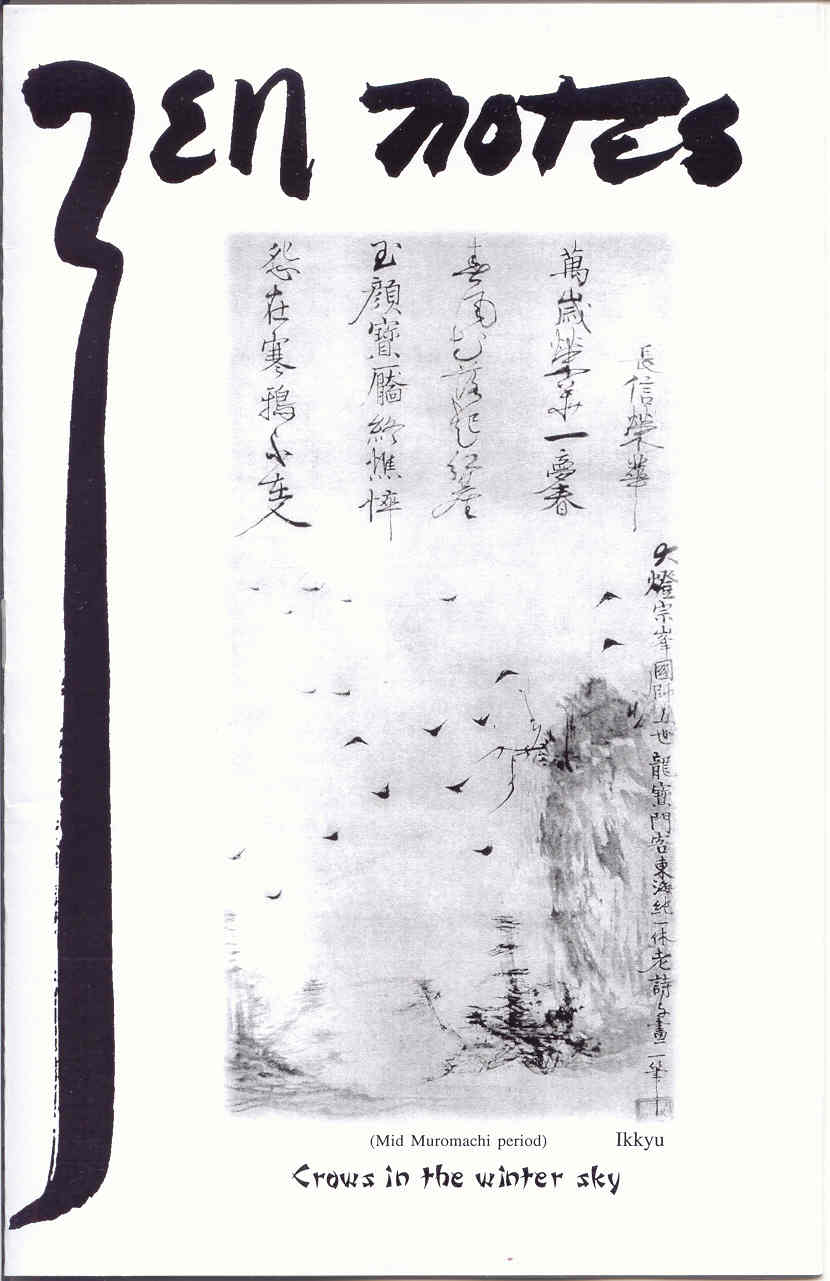 Zen notes
長信榮華
萬歳榮華一夢春
春風花落起紅塵
玉顔寶靨終憔悴
怨在寒鴉不在人
大燈宗峯國師五世龍寶門客東海純一休老詩与畫一筆
(Mid Muromachi period)
Ikkyu
Crows in the winter sky